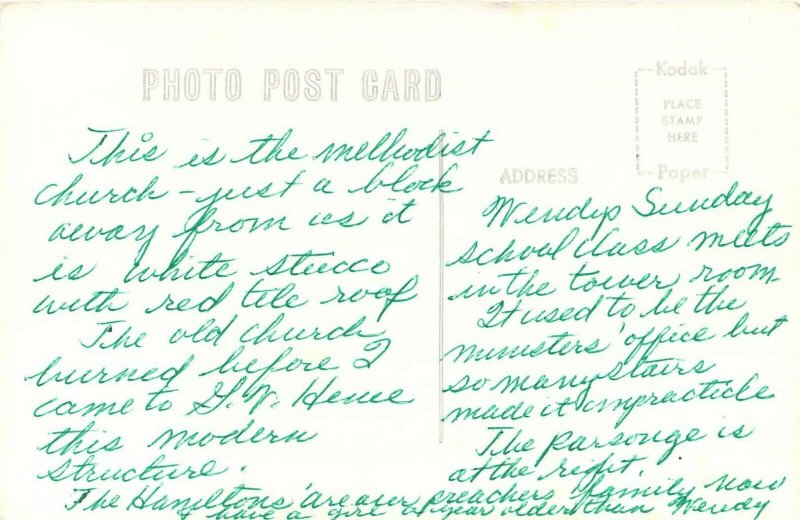 PHOTO POST CARD
Kodak
PLACE
STAMP
HERE
Paper
ADDRESS
This is the methodist
church - just a block
away from us it
is white stucco
with red tile roof
The old church
burned before I
came to G.V. Hence
this modern
structure.
Wendys Sunday
school class meets
in the tower room.
It used to be the
ministers' office but
so many stairs
made it impracticle
The parsonge is
at the right.
The Hamiltons are our preachers family now
& have a girl a year older than Wendy